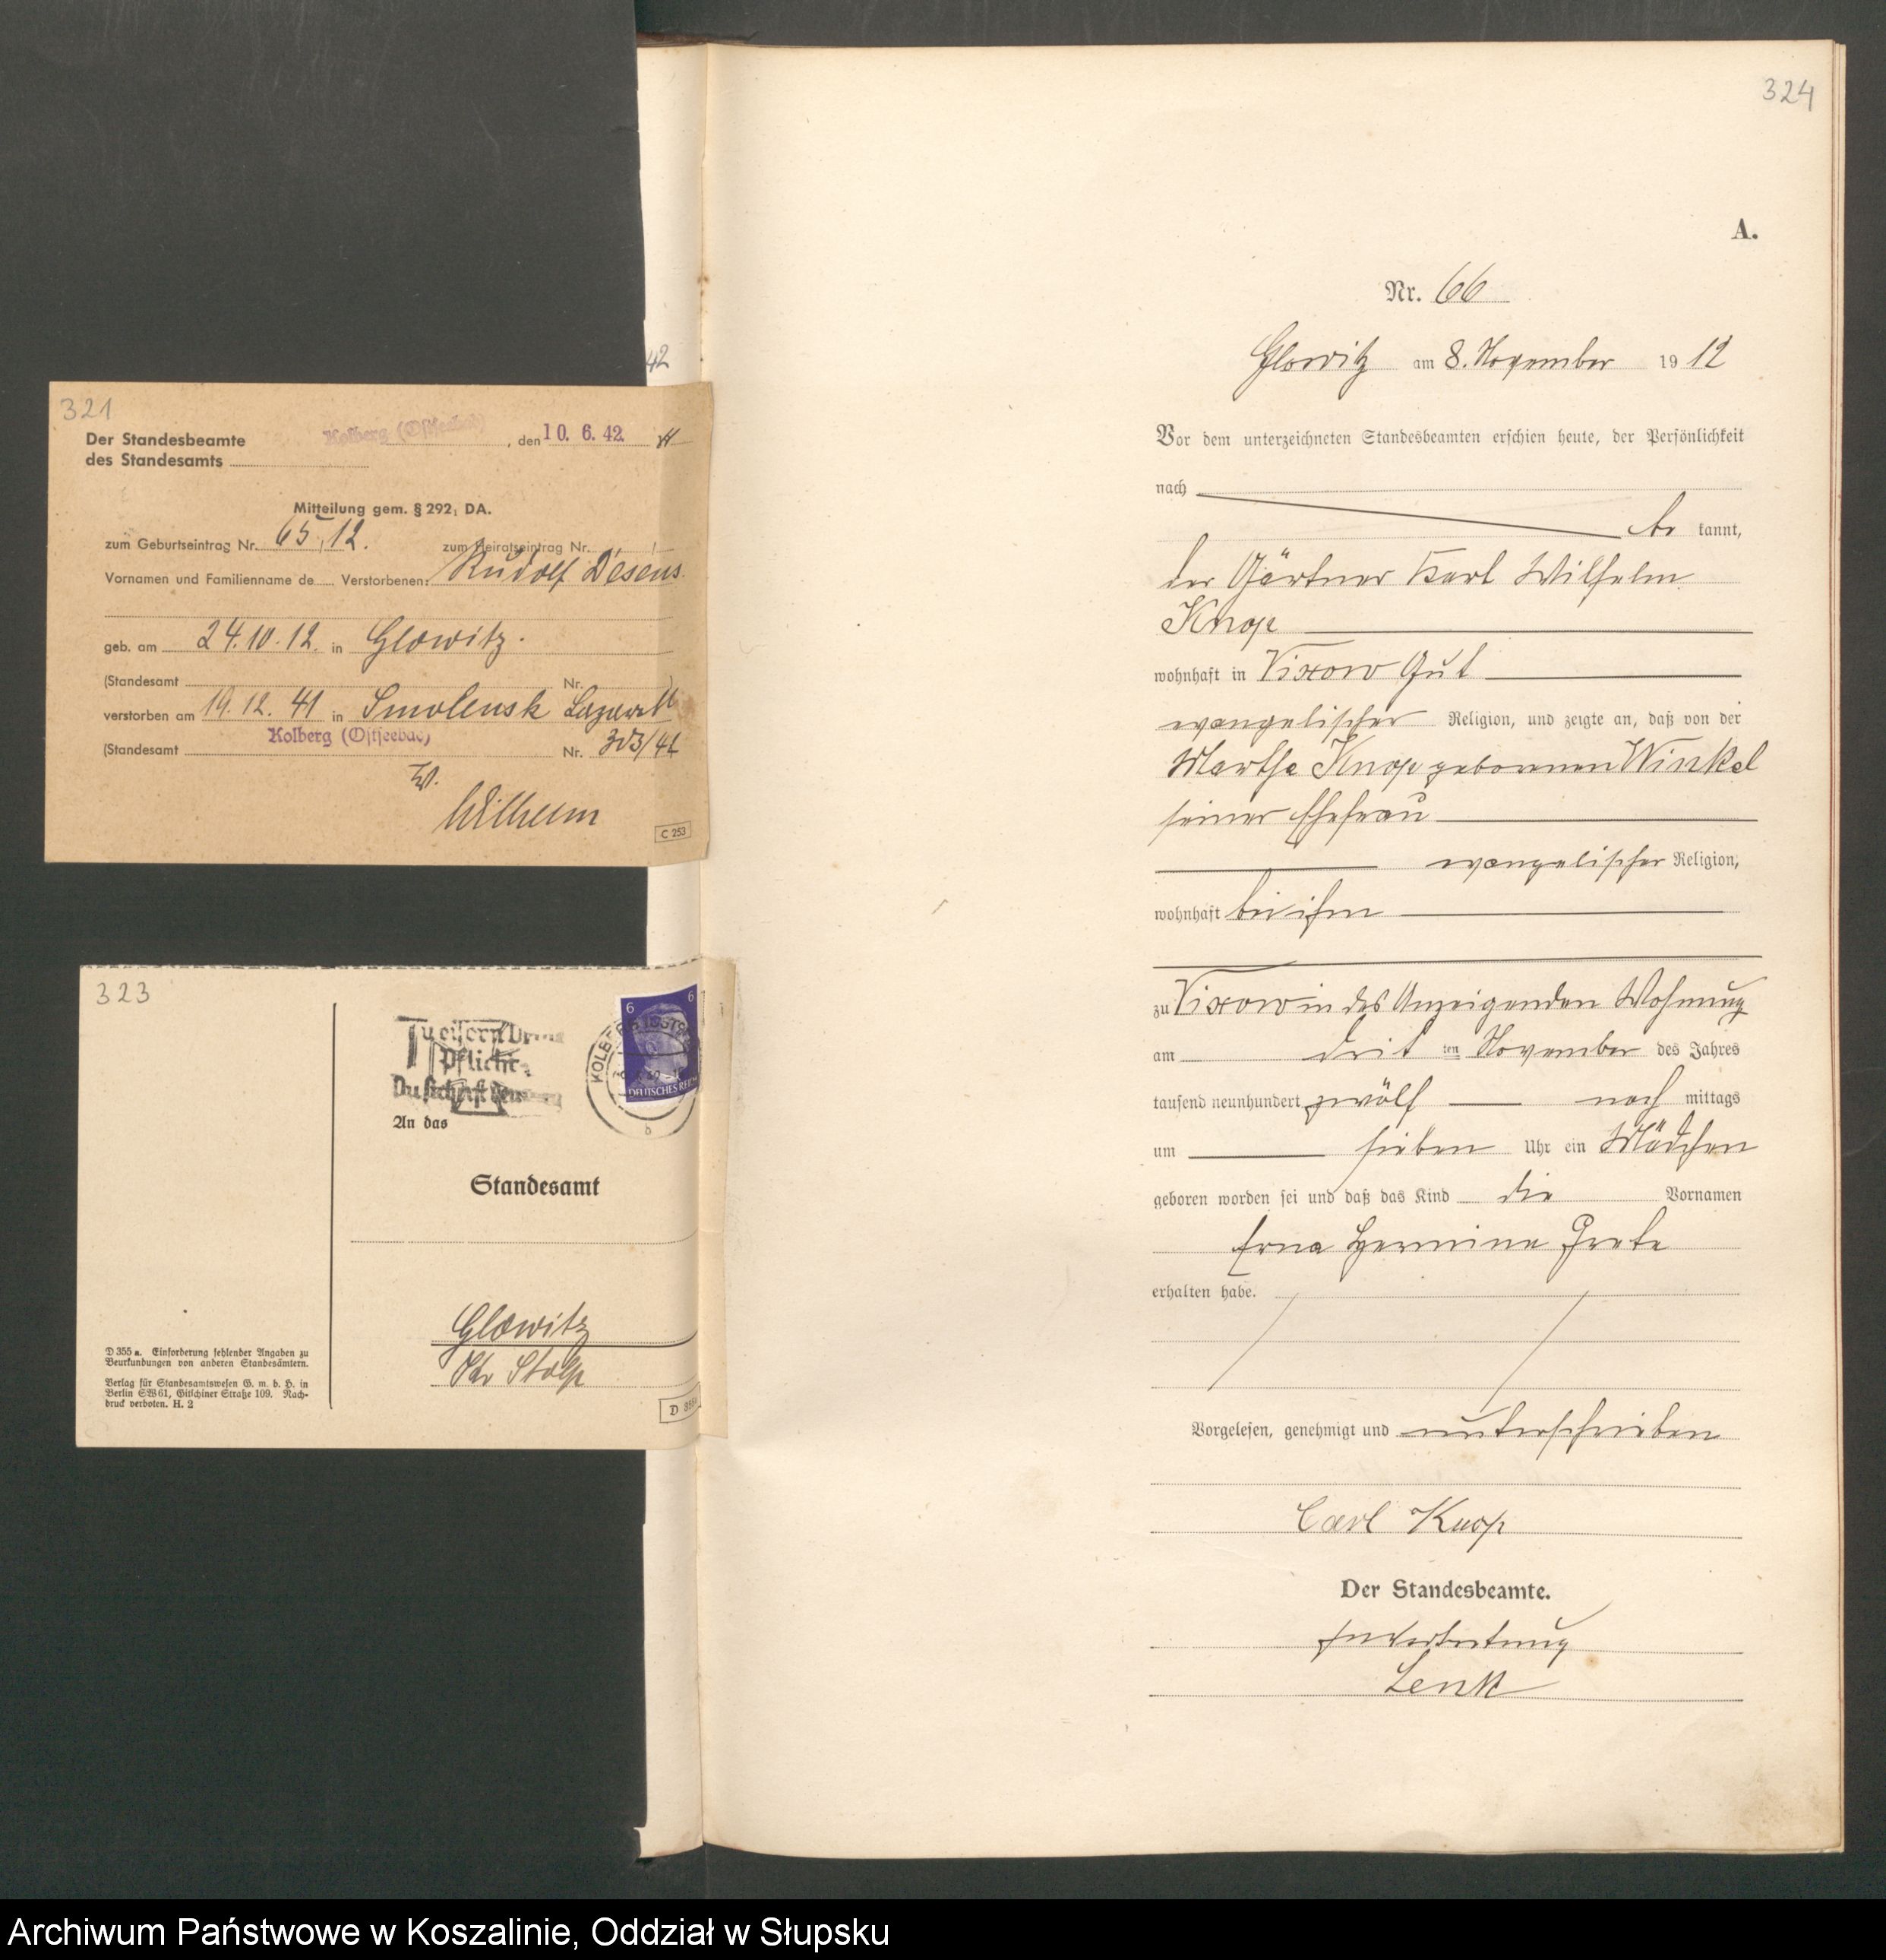 321
Der Standesbeamte
des Standesamts
Kolberg (Ostseebad), den 10. 6. 42.
Mitteilung gem. § 292, DA.
zum Geburtseintrag Nr. 65, 12. zum Heiratseintrag Nr.
Vornamen und Familienname de Verstorbenen: Rudolf Desens
geb. am 24.10.12. in Glowitz.
(Standesamt Nr. )
verstorben am 19.12.41 in Smolensk Lazarett
(Standesamt Kolberg (Ostseebad) Nr.
Wilhelm
C 253
323
Pflicht
An das
Standesamt
Glowitz
Kr Stolp
6 6
DEUTSCHES REICH
b
D 355a. Einforderung fehlender Angaben zu
Beurkundungen von anderen Standesämtern.
Verlag für Standesamtswesen G. m. b. H. in
Berlin SW61, Gitschiner Straße 109. Nach-
druck verboten. H. 2
42
324
A.
Nr. 66
Glowitz am 8. November 1912
Vor dem unterzeichneten Standesbeamten erschien heute, der Persönlichkeit
nach
be kannt,
der Gärtner Karl Wilhelm
Knop
wohnhaft in Vixow Gut
evangelischer Religion, und zeigte an, daß von der
Martha Knop geborenen Winkel
seiner Ehefrau
evangelischer Religion,
wohnhaft bei ihm
zu Vixow in des Anzeigenden Wohnung
am drit ten November des Jahres
tausend neunhundert zwölf nach mittags
um sieben Uhr ein Mädchen
geboren worden sei und daß das Kind die Vornamen
Erna Hermine Grete
erhalten habe.
Vorgelesen, genehmigt und unterschrieben
Carl Knop
Der Standesbeamte.
In Vertretung
Lenk
Archiwum Państwowe w Koszalinie, Oddział w Słupsku